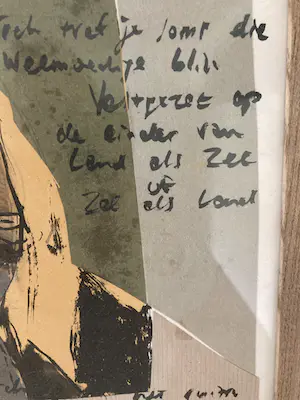 Toch tref je soms die
Weemoedige blik
Vastgezet op
de einder van
Land als Zee
of
Zee als Land